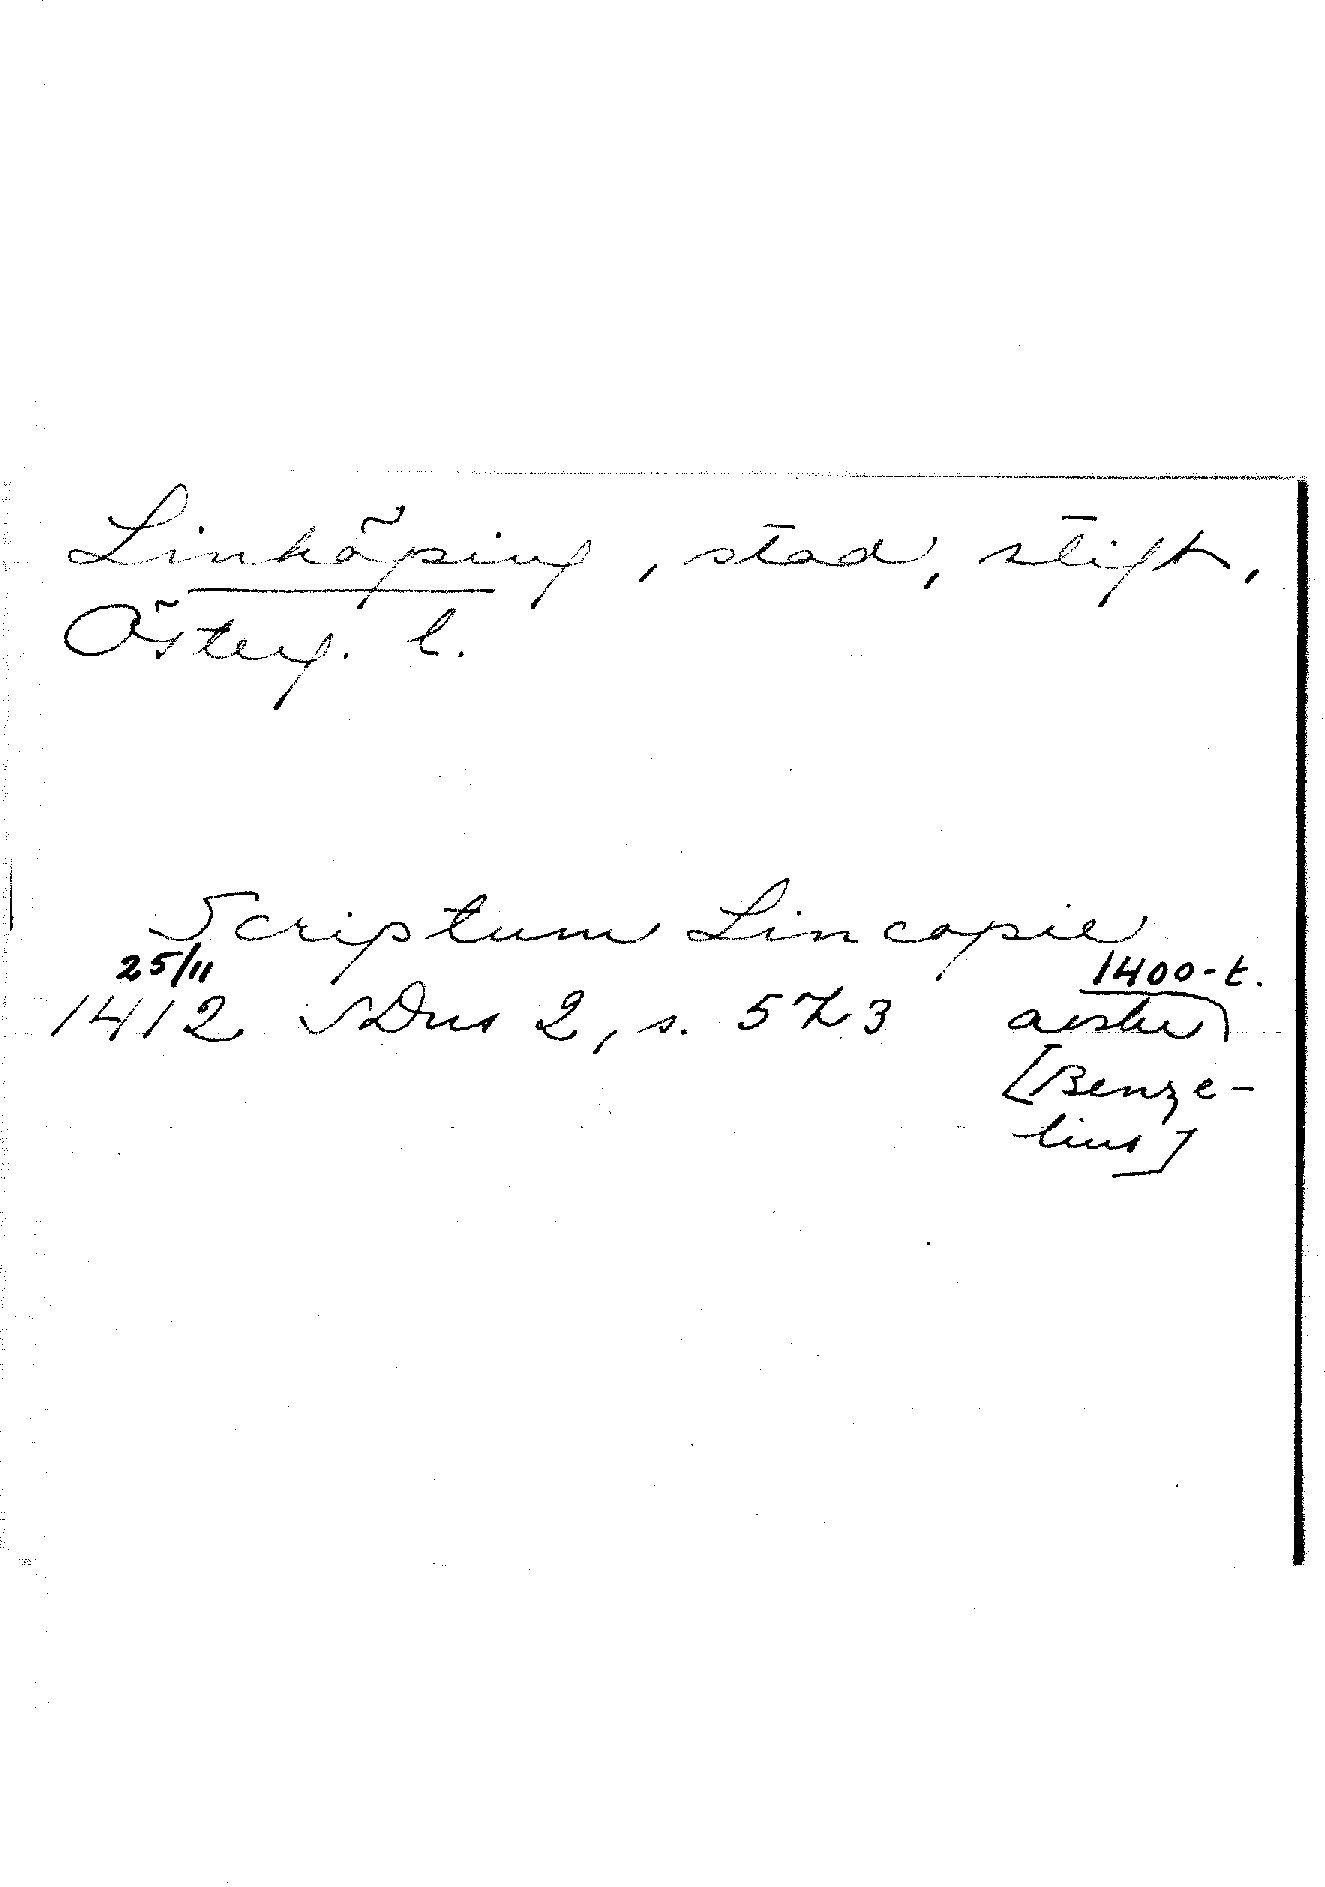 Linköping, stad, stift,
Österg. l.
Scriptum Lincopie
25/11 1400-t.
1412 SDns 2, s. 573 avskr
[Benze-
lius]